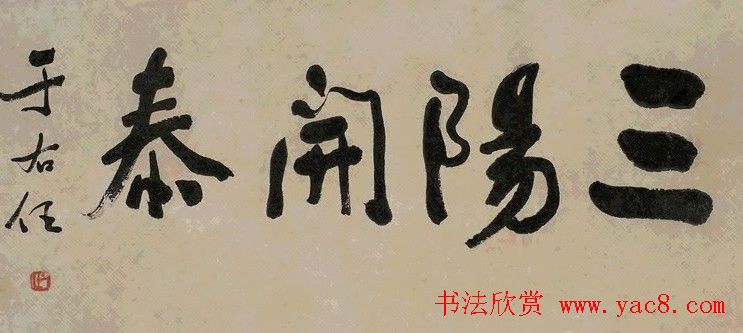 三陽開泰
于右任
书法欣赏 www.yac8.com